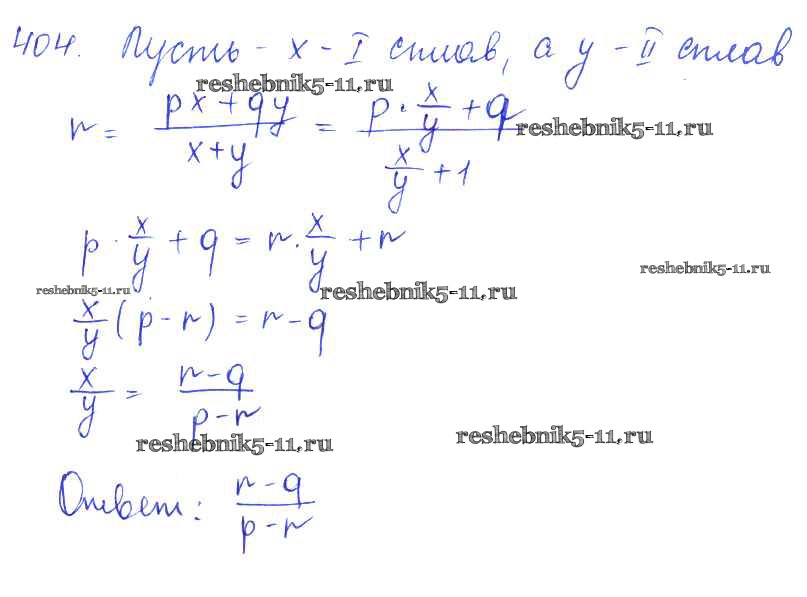 404. Пусть - x - I сплав, а y - II сплав
reshebnik5-11.ru
r = (px + qy)/(x + y) = (p · x/y + q)/(x/y + 1)
reshebnik5-11.ru
p · x/y + q = r · x/y + r
reshebnik5-11.ru
reshebnik5-11.ru
reshebnik5-11.ru
x/y (p - r) = r - q
x/y = (r - q)/(p - r)
reshebnik5-11.ru
reshebnik5-11.ru
Ответ: (r - q)/(p - r)